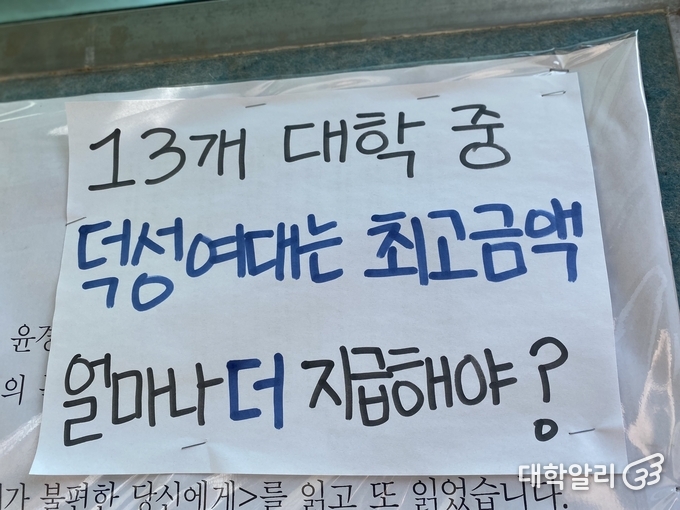 13개 대학 중
덕성여대는 최고금액
윤경
의
얼마나 더 지급해야?
대학알리
가 불편한 당신에게>를 읽고 또 읽었습니다.